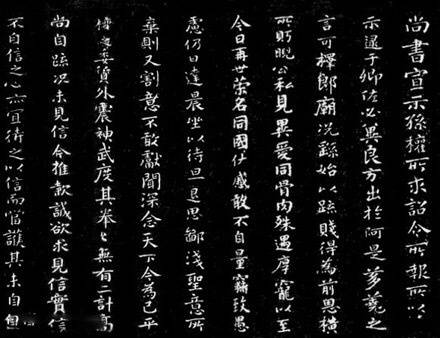 尚書宣示孫權所求詔令所報所以
示逮于卿佐必冀良方出於阿是芻蕘之
言可擇郎廟況繇始以疏賤得為前恩橫
所盻睨公私見異愛同骨肉殊遇厚寵以至
今日再世榮名同國休慼敢不自量竊致愚
慮仍日達晨坐以待旦退思鄙淺聖意所
棄則又割意不敢獻聞深念天下今為已平
權之委質外震神武度其拳拳無有二計高
尚自疏況未見信今推款誠欲求見信實
不自信之心亦宜待之以信而當護其未自